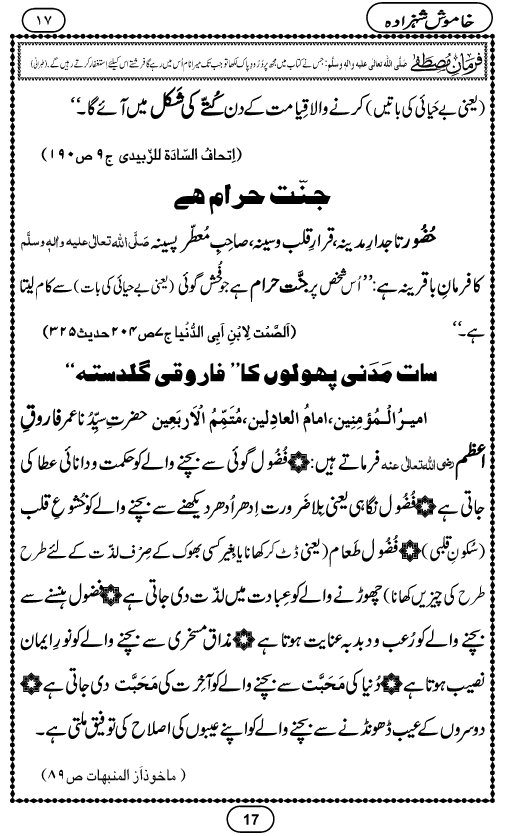 خاموش شہزادہ
۱۷
فرمانِ مُصطَفٰے صَلَّی اللہ تعالٰی علیہ واٰلہٖ وسلَّم: جس نے کتاب میں مجھ پر دُرُودِ پاک لکھا تو جب تک میرا نام اُس میں رہے گا فرشتے اس کیلئے استغفار کرتے رہیں گے۔ (طبرانی)
(یعنی بے حَیائی کی باتیں) کرنے والا قِیامت کے دن کُتّے کی شَکل میں آئے گا۔‘‘
(اِتحافُ السّادَۃ للزَّبیدی ج۹ ص۱۹۰)
جنّت حرام ھے
حُضُور تاجدارِ مدینہ، قرارِ قلب و سینہ، صاحِبِ مُعطَّر پسینہ صَلَّی اللہ تعالٰی علیہ واٰلہٖ وسلَّم
کا فرمانِ باقرینہ ہے: ’’اُس شخص پر جنَّت حرام ہے جو فُحش گوئی (یعنی بے حیائی کی بات) سے کام لیتا
ہے۔‘‘ (اَلصَّمْت لِابْنِ اَبِی الدُّنْیا ج۷ ص۲۰۴ حدیث۳۲۵)
سات مَدَنی پھولوں کا ’’فاروقی گلدستہ‘‘
امیرُ الْمُؤمِنِین، امامُ العادِلین، مُتَمِّمُ الْاَربَعِین حضرتِ سیِّدُنا عمر فاروقِ
اعظم رضی اللہ تعالٰی عنہ فرماتے ہیں: ۞ فُضُول گوئی سے بچنے والے کو حکمت و دانائی عطا کی
جاتی ہے ۞ فُضُول نگاہی یعنی بلا ضَرورت اِدھر اُدھر دیکھنے سے بچنے والے کو خُشُوعِ قلب
(سُکونِ قلبی) ۞ فُضُول طَعام (یعنی ڈٹ کر کھانا یا بغیر کسی بھوک کے صِرف لذّت کے لئے طرح
طرح کی چیزیں کھانا) چھوڑنے والے کو عِبادت میں لذّت دی جاتی ہے ۞ فضول ہنسنے سے
بچنے والے کو رُعب و دبدبہ عنایت ہوتا ہے ۞ مذاق مسخری سے بچنے والے کو نورِ ایمان
نصیب ہوتا ہے ۞ دُنیا کی مَحَبَّت سے بچنے والے کو آخِرت کی مَحَبَّت دی جاتی ہے ۞
دوسروں کے عیب ڈھونڈنے سے بچنے والے کو اپنے عیبوں کی اصلاح کی توفیق ملتی ہے۔
(ماخوذاَز المنبھات ص۸۹)
17